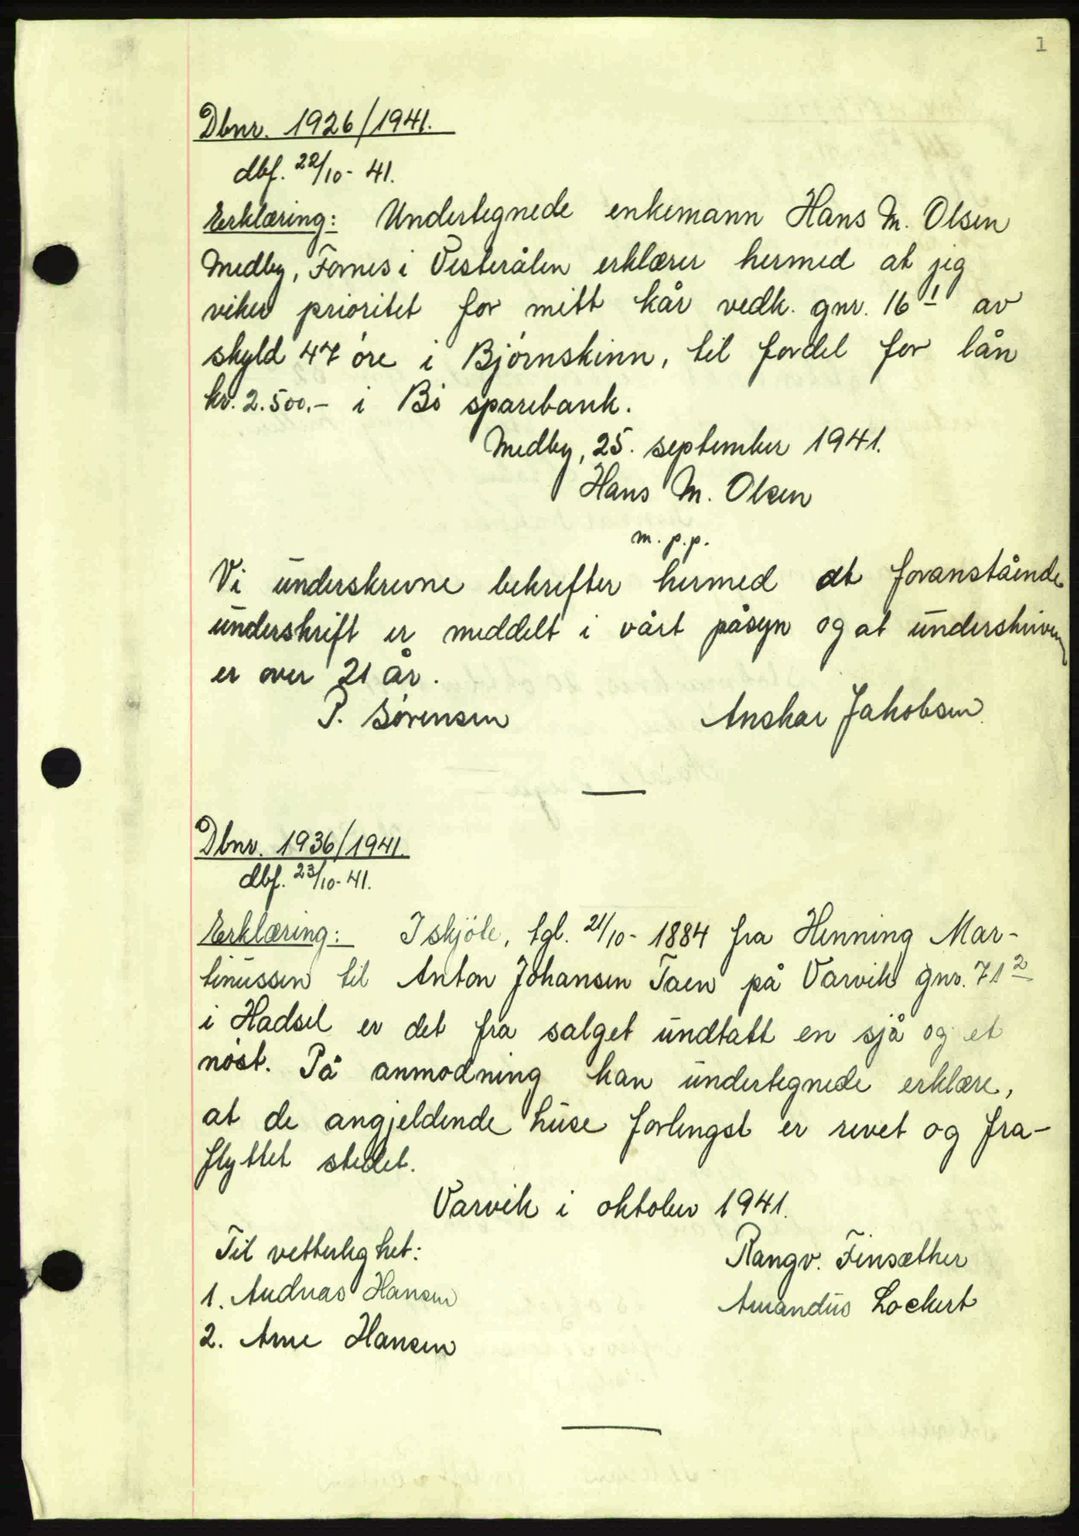 1
Dbnr. 1926/1941.
dbf. 22/10-41.
Erklæring: Undertegnede enkemann Hans M. Olsen
Medby, Fornes i Vesterålen erklærer hermed at jeg
viker prioritet for mitt kår vedk. gnr. 16 1 av
skyld 47 øre i Bjørnskinn, til fordel for lån
kr. 2.500.- i Bø sparebank.
Medby, 25. september 1941.
Hans M. Olsen
m.p.p.
Vi underskrevne bekrefter hermed at foranstående
underskrift er meddelt i vårt påsyn og at underskriveren
er over 21 år.
P. Sørensen Anskar Jakobsen
Dbnr. 1936/1941.
dbf. 23/10-41.
Erklæring: I skjöte, tgl. 21/10-1884 fra Henning Mar-
tinussen til Anton Johansen Taen på Varvik gnr. 71 2
i Hadsel er det fra salget undtatt en sjå og et
nøst. På anmodning kan undertegnede erklære,
at de angjeldende huse forlengst er revet og fra-
flyttet stedet.
Varvik i oktober 1941.
Til vetterlighet: Rangv. Finsæther
1. Andreas Hansen Amandus Lockert
2. Arne Hansen